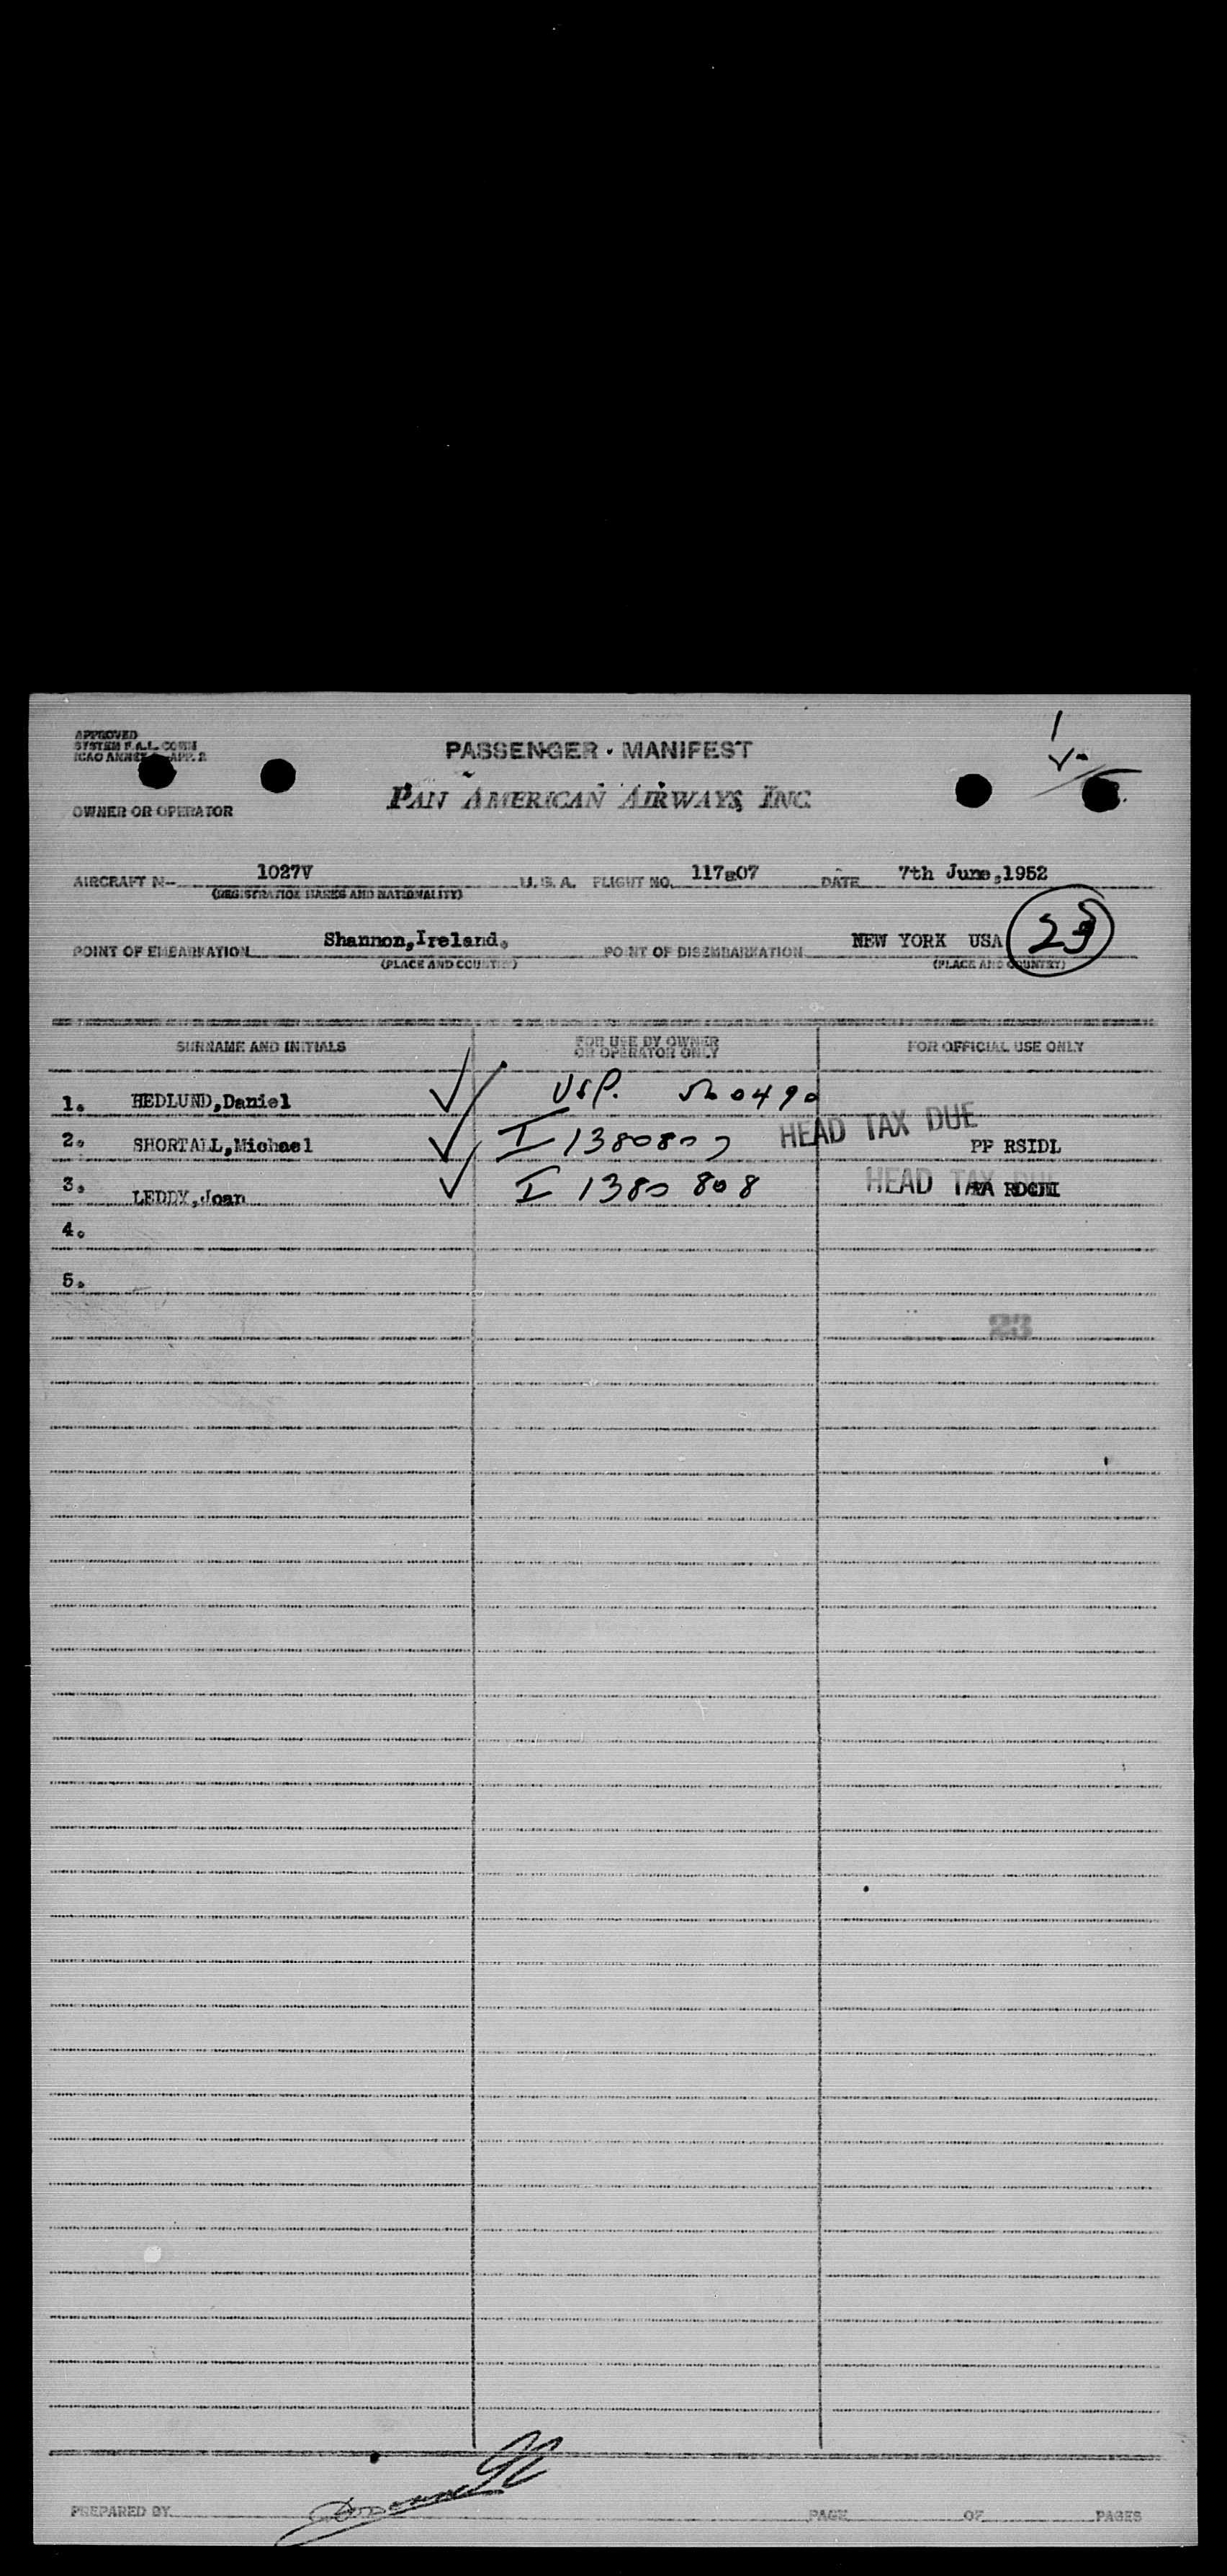 APPROVED
SYSTEM F.A.L. COMM
ICAO ANNEX APP. 2
PASSENGER · MANIFEST
OWNER OR OPERATOR
PAN AMERICAN AIRWAYS, INC.
AIRCRAFT N- 1027V U.S.A. FLIGHT NO. 117/07 DATE 7th June,1952
(REGISTRATION MARKS AND NATIONALITY)
POINT OF EMBARKATION Shannon,Ireland. POINT OF DISEMBARKATION NEW YORK USA 23
(PLACE AND COUNTRY) (PLACE AND COUNTRY)
SURNAME AND INITIALS FOR USE BY OWNER OR OPERATOR ONLY FOR OFFICIAL USE ONLY
1. HEDLUND,Daniel USP.
2. SHORTALL,Michael I HEAD TAX DUE PP RSIDL
3. LEDDY,Joan I 1380808 HEAD TAX DUE
4.
5.
23
PREPARED BY PAGE OF PAGES